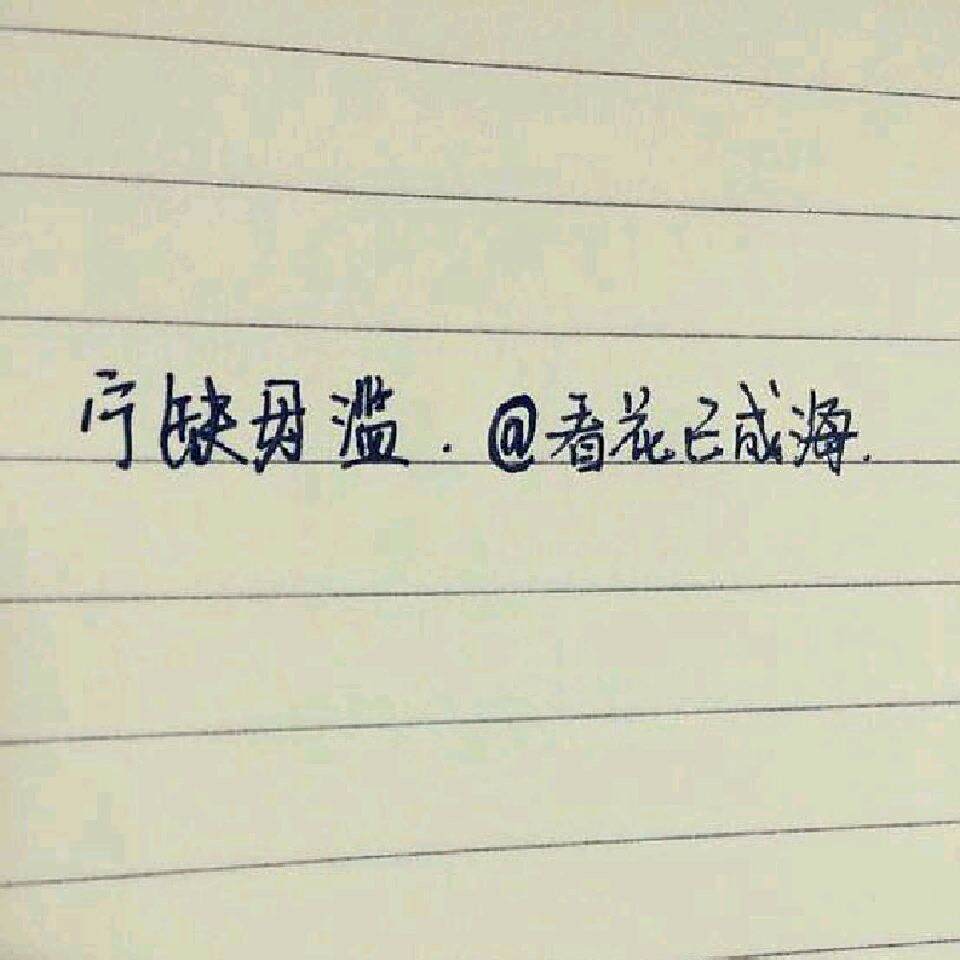 宁缺毋滥.@看花已成海.